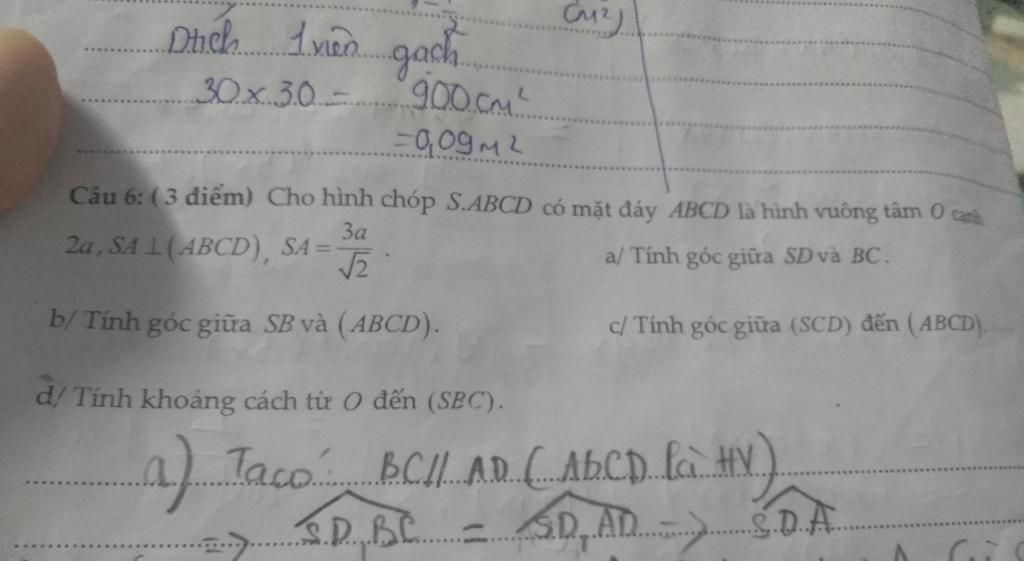 cm2)
Dtích 1 viên gạch
30 x 30 = 900 cm²
= 0,09 m2
Câu 6: ( 3 điểm) Cho hình chóp S.ABCD có mặt đáy ABCD là hình vuông tâm O cạnh
2a, SA ⊥ (ABCD), SA = 3a/√2 . a/ Tính góc giữa SD và BC.
b/ Tính góc giữa SB và (ABCD). c/ Tính góc giữa (SCD) đến (ABCD).
d/ Tính khoảng cách từ O đến (SBC).
a) Ta có: BC // AD ( AbCD là HV)
=> SD, BC = SD, AD => SDA